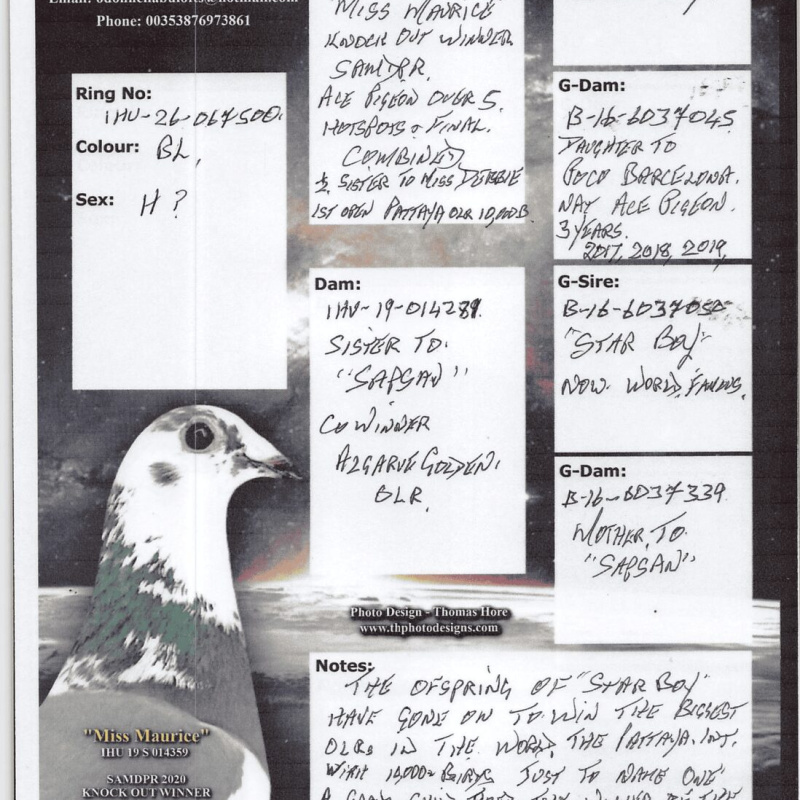 Phone: 00353876973861
Ring No:
IHU-26-067500.
Colour: BL,
Sex: H ?
MISS MAURICE
KNOCK OUT WINNER
SAMDPR.
ACE PIGEON OVER 5.
HOTSPOTS & FINAL.
COMBINED
½ SISTER TO MISS DEBBIE
1ST OPEN PATTAYA OLR 10,000B.
Dam:
IHU-19-014289.
SISTER TO.
"SAPSAN"
CO WINNER
ALGARVE GOLDEN.
OLR.
G-Dam:
B-16-6037045
DAUGHTER TO
POCO BARCELONA.
NAT ACE PIGEON.
3 YEARS.
2017, 2018, 2019,
G-Sire:
B-16-6037050
"STAR BOY"
NOW WORLD FAMOUS.
G-Dam:
B-16-6037339
MOTHER TO.
"SAPSAN"
Photo Design - Thomas Hore
www.thphotodesigns.com
Notes:
THE OFSPRING OF "STAR BOY"
HAVE GONE ON TO WIN THE BIGGEST
OLRs IN THE WORLD, THE PATTAYA. INT.
WITH BIRDS JUST TO NAME ONE
"Miss Maurice"
IHU 19 S 014359
SAMDPR 2020
KNOCK OUT WINNER